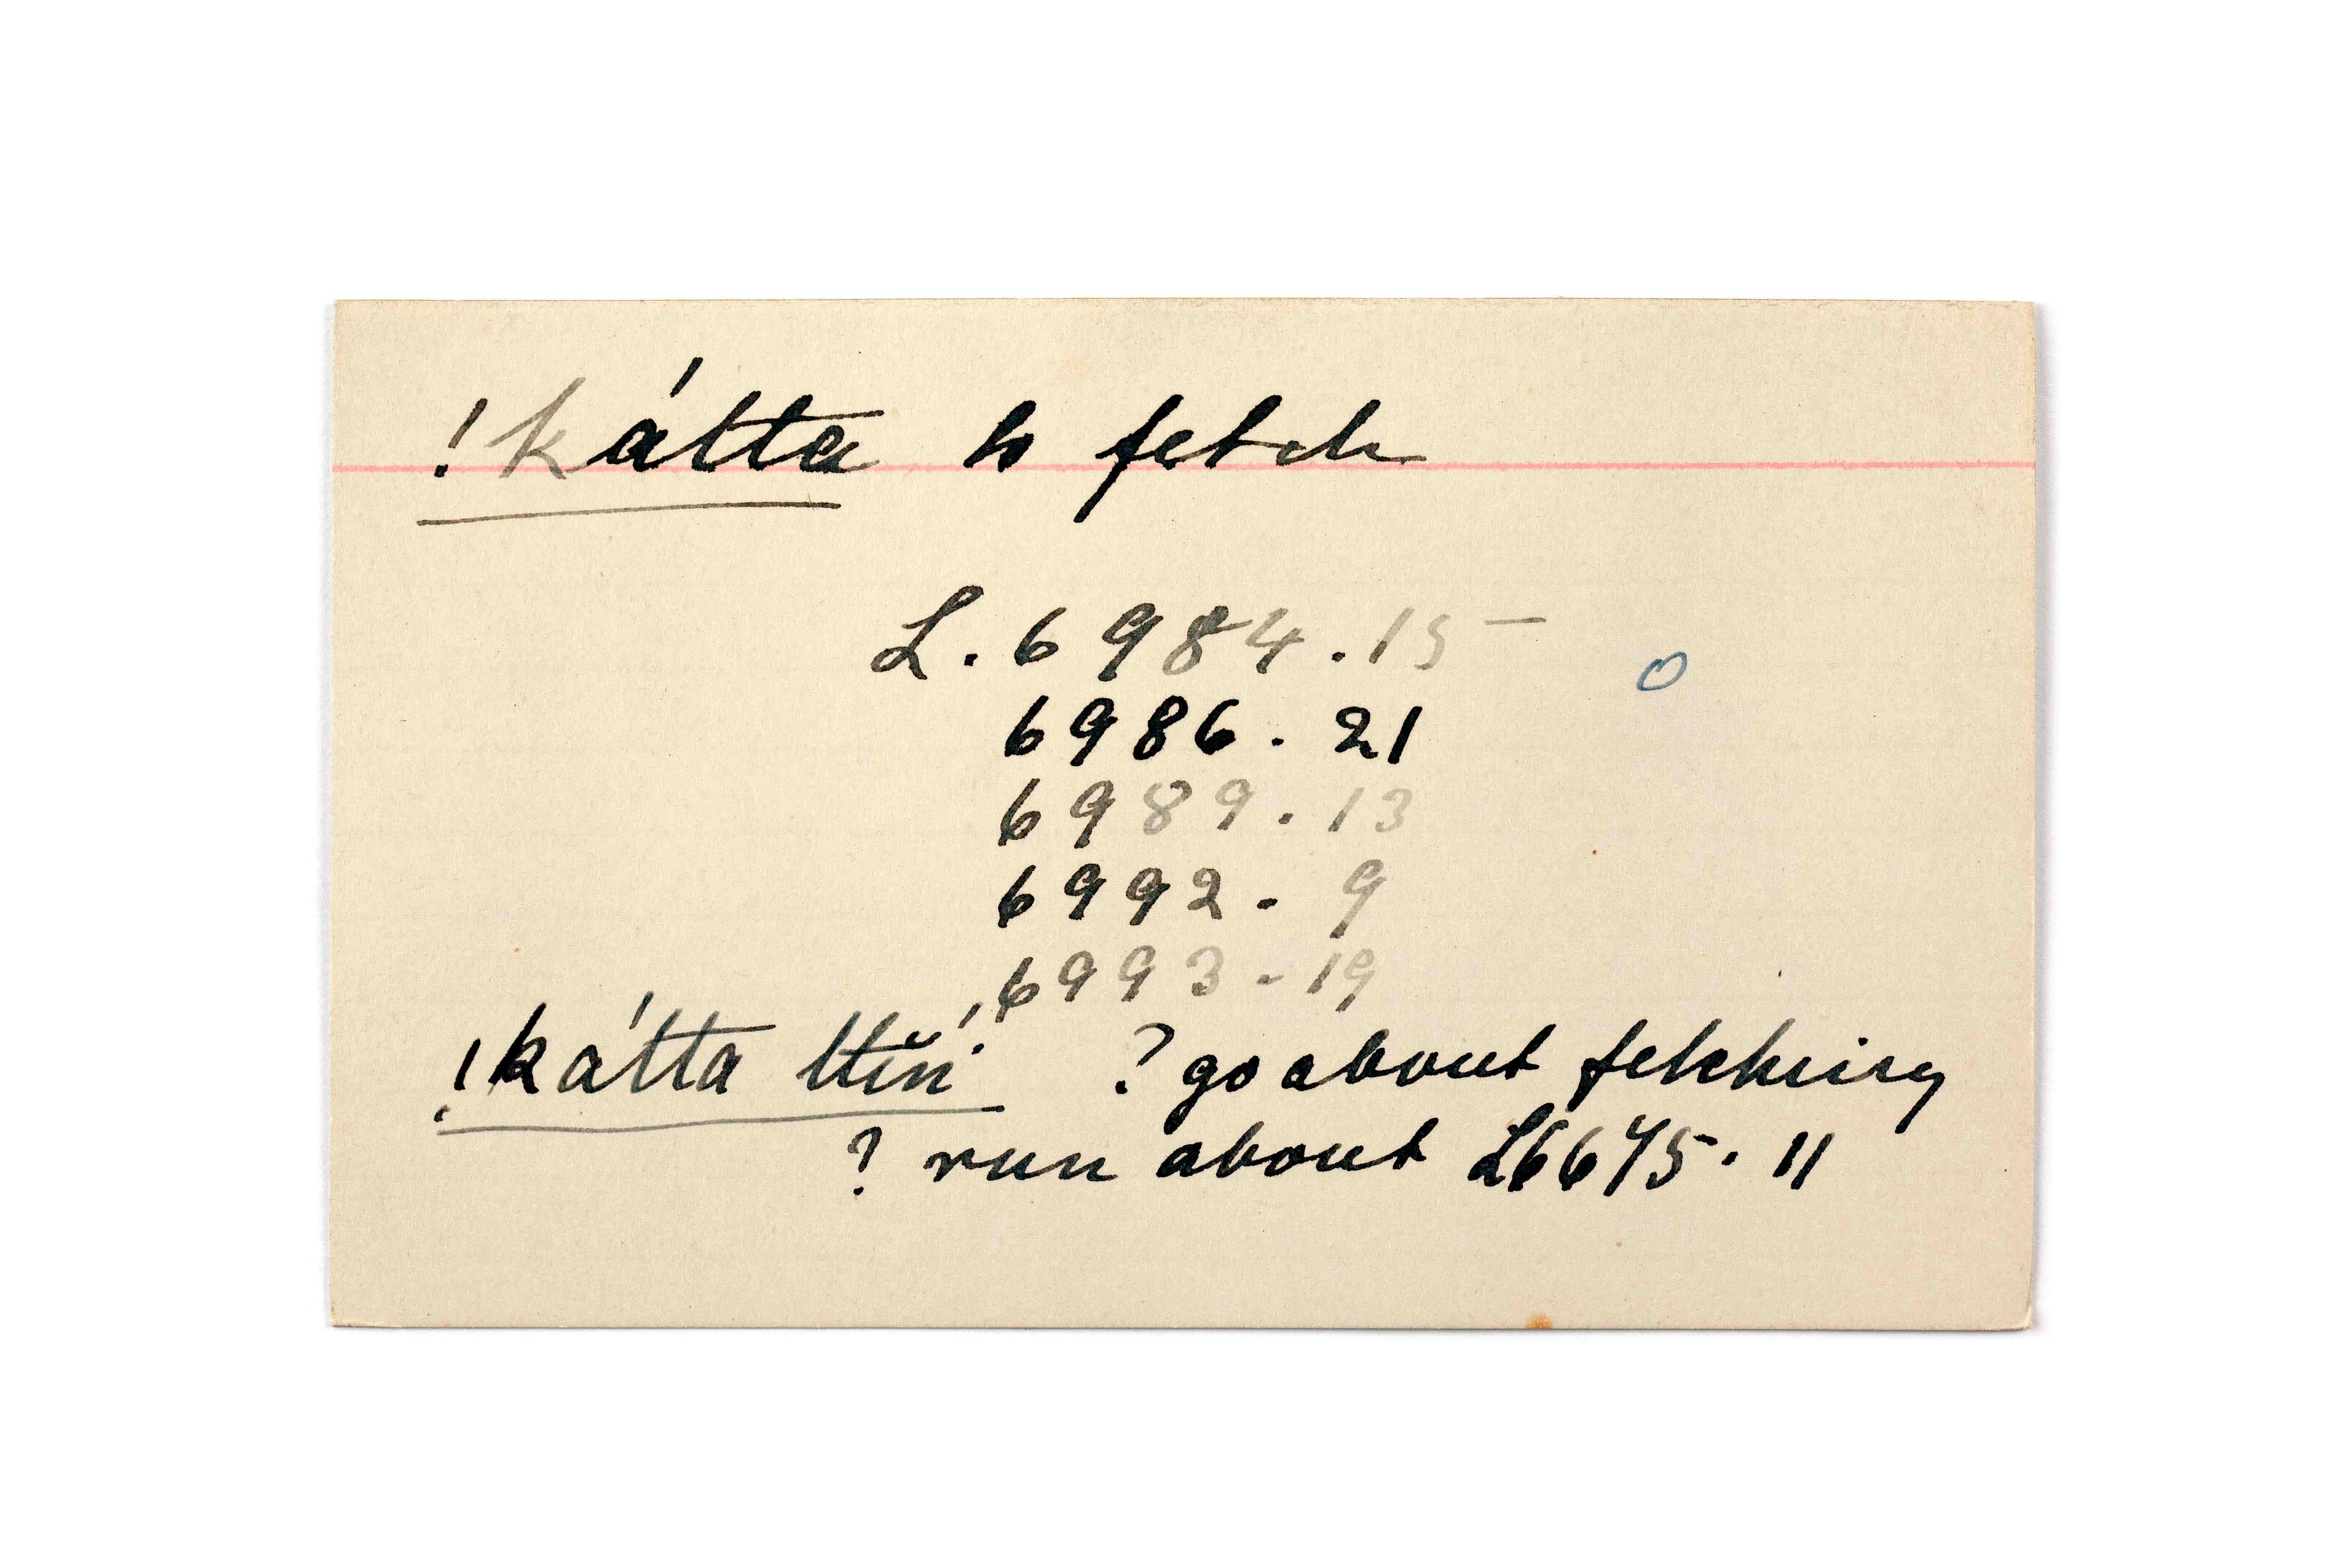 !kátta to fetch
L. 6984.15
6986.21
6989.13
6992.9
6993.19
!kátta ttĭń ? go about fetching
? run about L6675.11